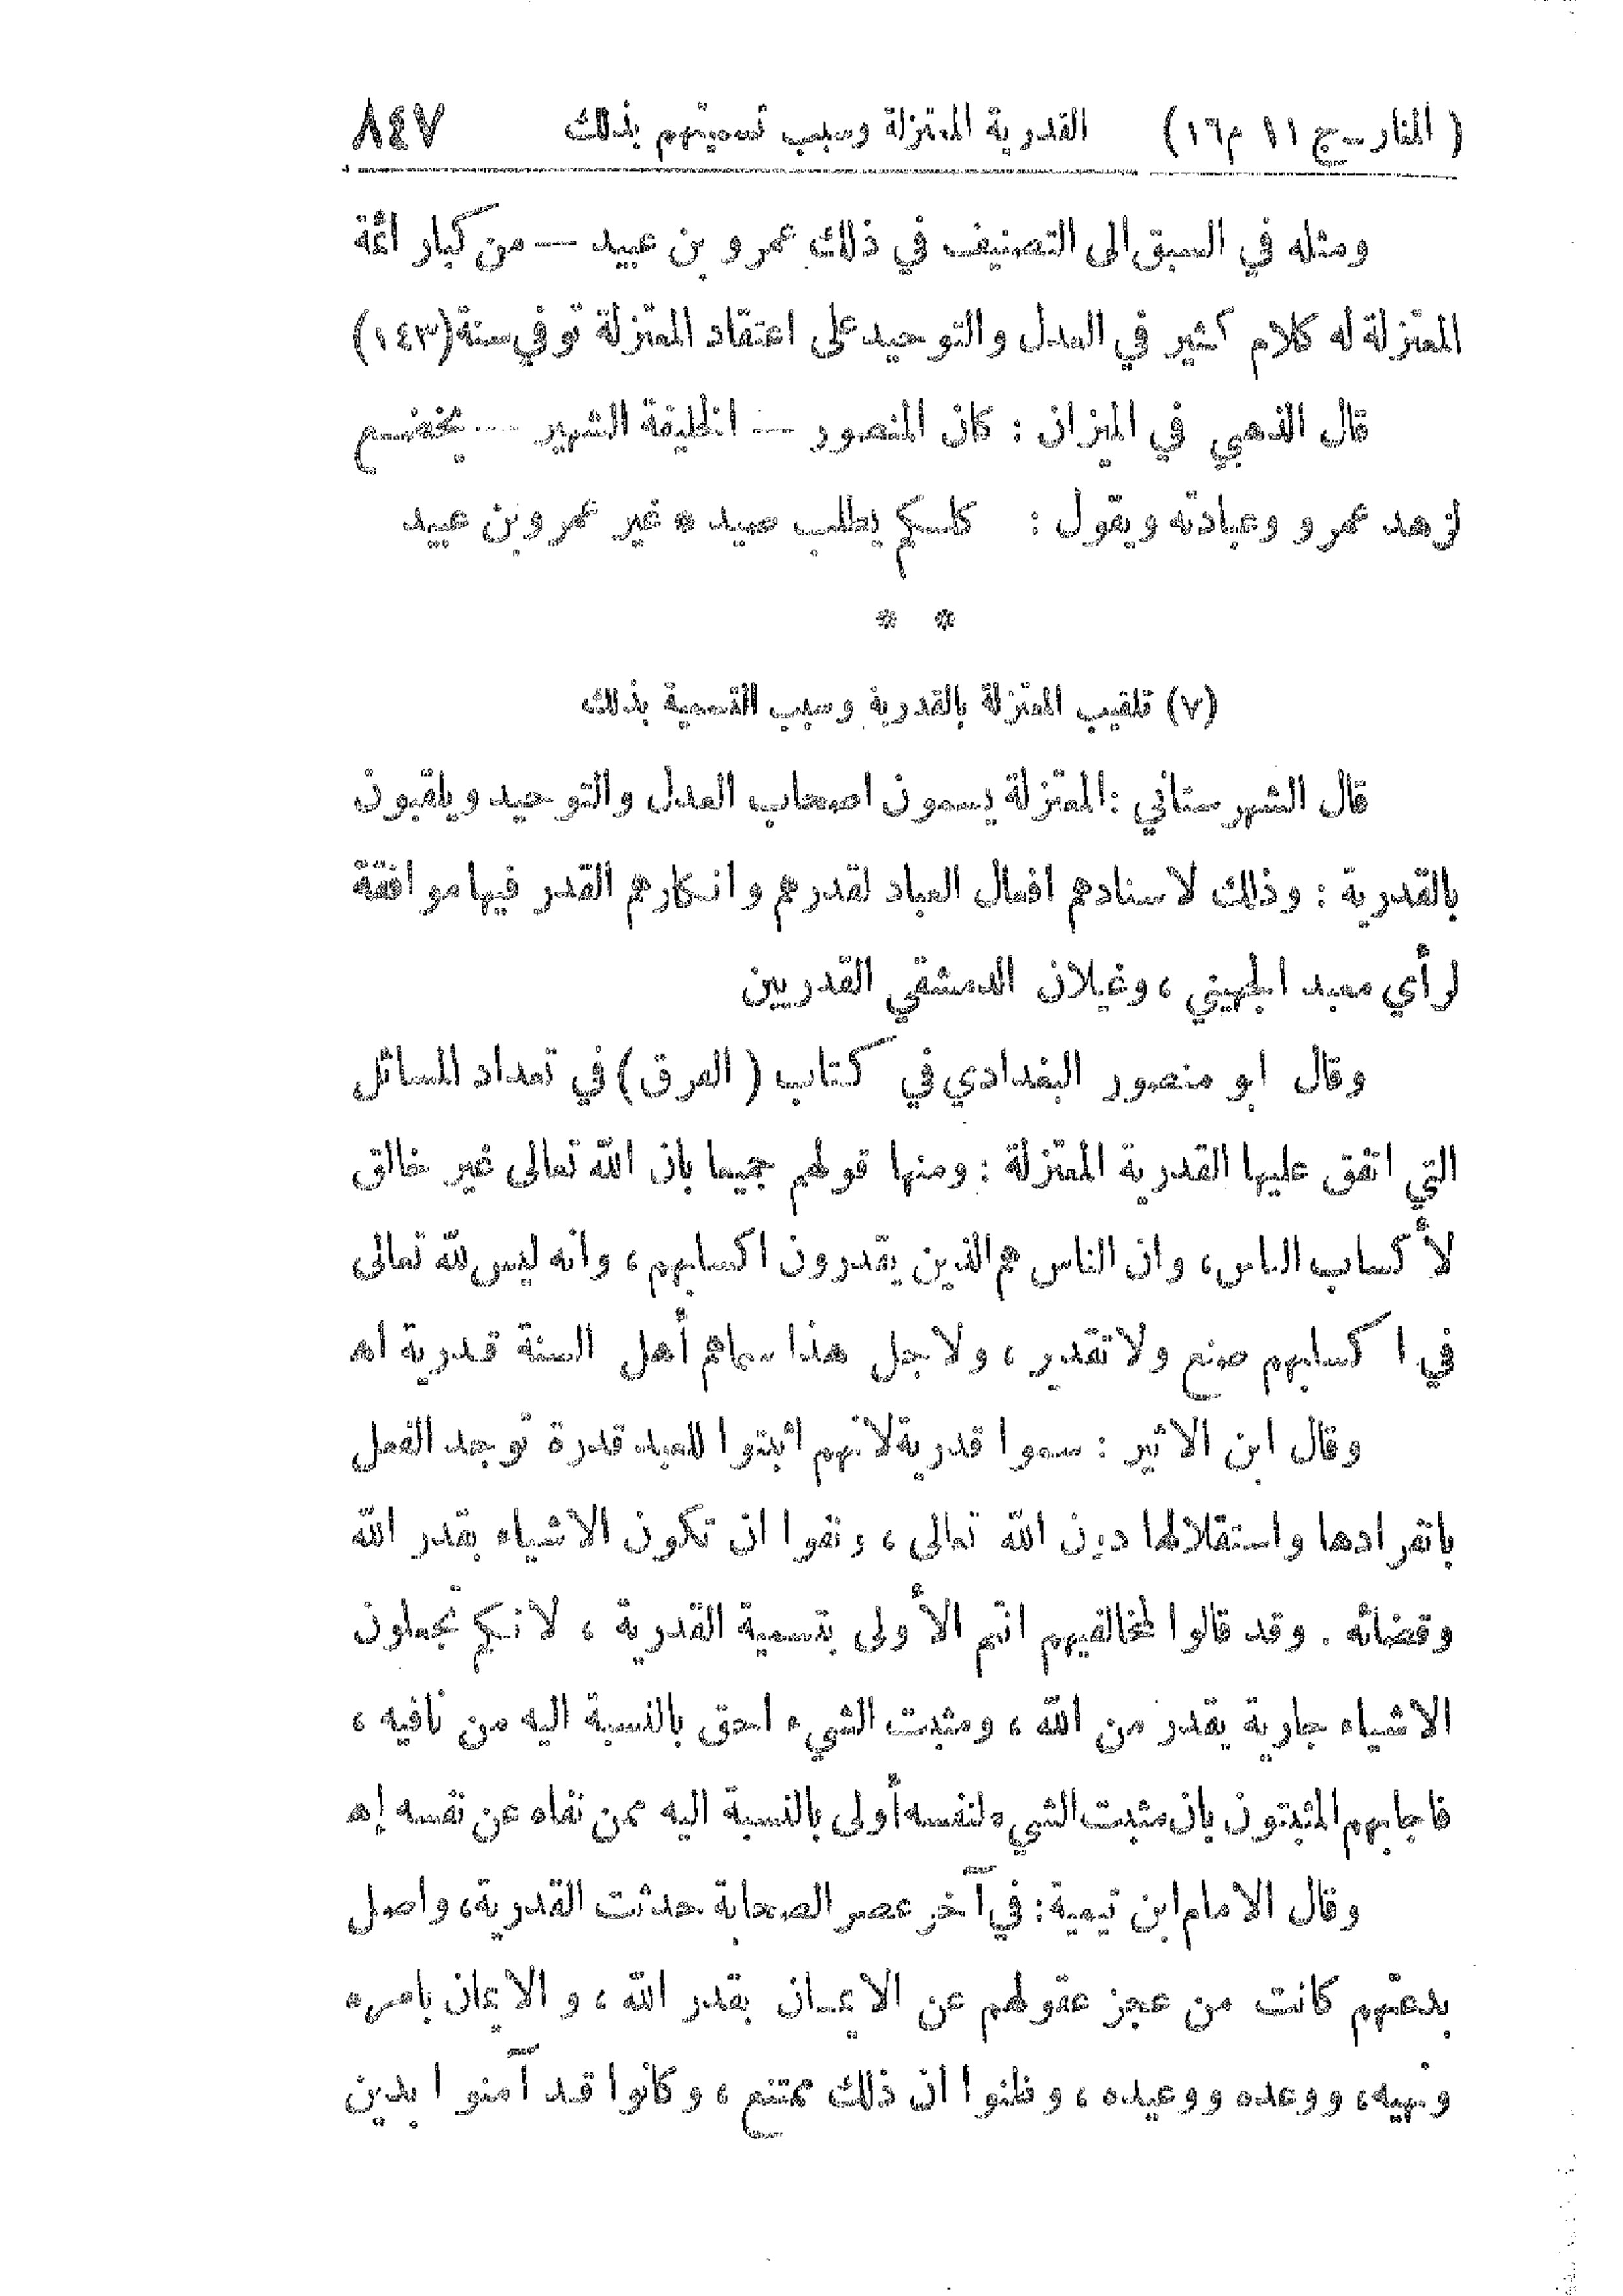 ( المنار ــ ج ١١ م١٦) القدرية المعتزلة وسبب تسميتهم بذلك ٨٤٧
ومثله في السبق الى التصنيف في ذلك عمرو بن عبيد — من كبار ائمة
المعتزلة له كلام كثير في العدل والتوحيد على اعتقاد المعتزلة توفي سنة (١٤٣)
قال الذهبي في الميزان : كان المنصور — الخليفة الشهير — يخضع
لزهد عمرو وعبادته ويقول : كلكم يطلب صيد * غير عمرو بن عبيد
* *
(٧) تلقيب المعتزلة بالقدرية وسبب التسمية بذلك
قال الشهرستاني : المعتزلة يسمون اصحاب العدل والتوحيد ويلقبون
بالقدرية : وذلك لاسنادهم افعال العباد لقدرهم وانكارهم القدر فيها موافقة
لرأي معبد الجهني ، وغيلان الدمشقي القدريين
وقال ابو منصور البغدادي في كتاب ( الفرق ) في تعداد المسائل
التي اتفق عليها القدرية المعتزلة : ومنها قولهم جميعا بان الله تعالى غير خالق
لأكساب الناس، وان الناس هم الذين يقدرون اكسابهم ، وانه ليس لله تعالى
في اكسابهم صنع ولا تقدير ، ولاجل هذا سماهم أهل السنة قدرية اه
وقال ابن الاثير : سموا قدرية لانهم اثبتوا للعبد قدرة توجد الفعل
بانفرادها واستقلالها دون الله تعالى ، ونفوا ان تكون الاشياء بقدر الله
وقضائه . وقد قالوا لمخالفيهم انتم الأولى بتسمية القدرية ، لانكم تجعلون
الاشياء جارية بقدر من الله ، ومثبت الشيء احق بالنسبة اليه من نافيه ،
فاجابهم المثبتون بان مثبت الشيء لنفسه أولى بالنسبة اليه ممن نفاه عن نفسه إه
وقال الامام ابن تيمية : في آخر عصر الصحابة حدثت القدرية، واصل
بدعتهم كانت من عجز عقولهم عن الايمان بقدر الله ، والايمان بامره
ونهيه، ووعده ووعيده ، وظنوا ان ذلك ممتنع ، وكانوا قد آمنوا بدين